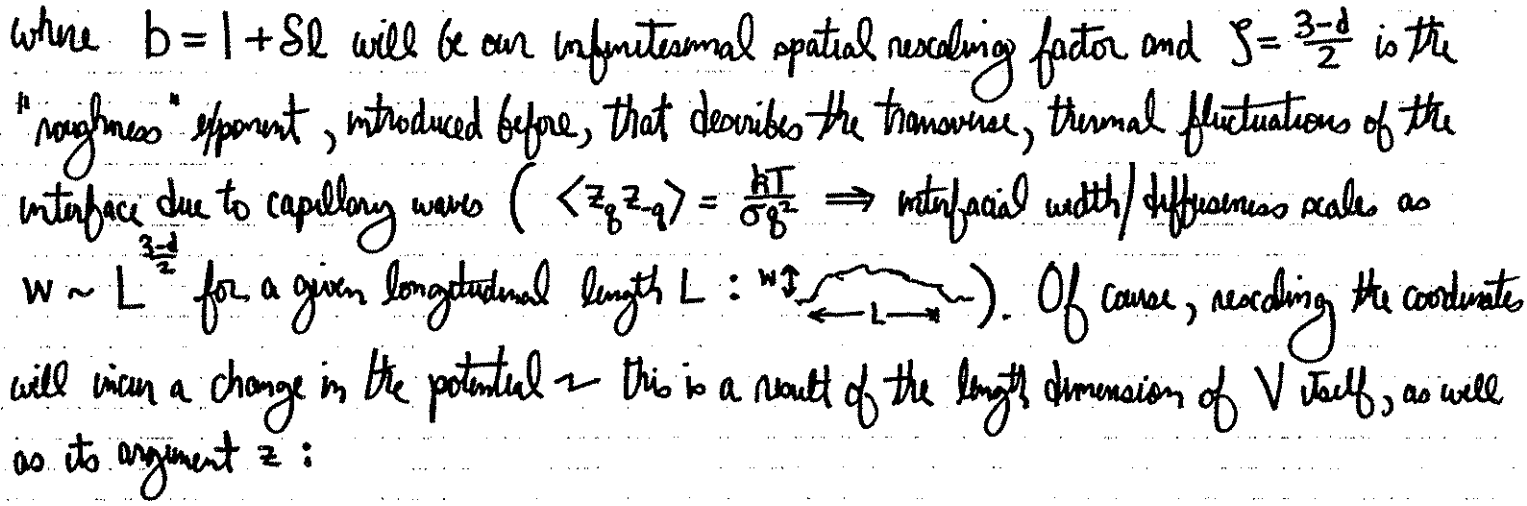 where b = 1 + δl will be our infinitesimal spatial rescaling factor and ζ = (3-d)/2 is the
"roughness" exponent, introduced before, that describes the transverse, thermal fluctuations of the
interface due to capillary waves ( <z_q z_-q> = kT/σq² ⟹ interfacial width/diffuseness scales as
w ~ L^((3-d)/2) for a given longitudinal length L : w↕ ←L→ ). Of course, rescaling the coordinates
will incur a change in the potential ~ this is a result of the length dimension of V itself, as well
as its argument z :